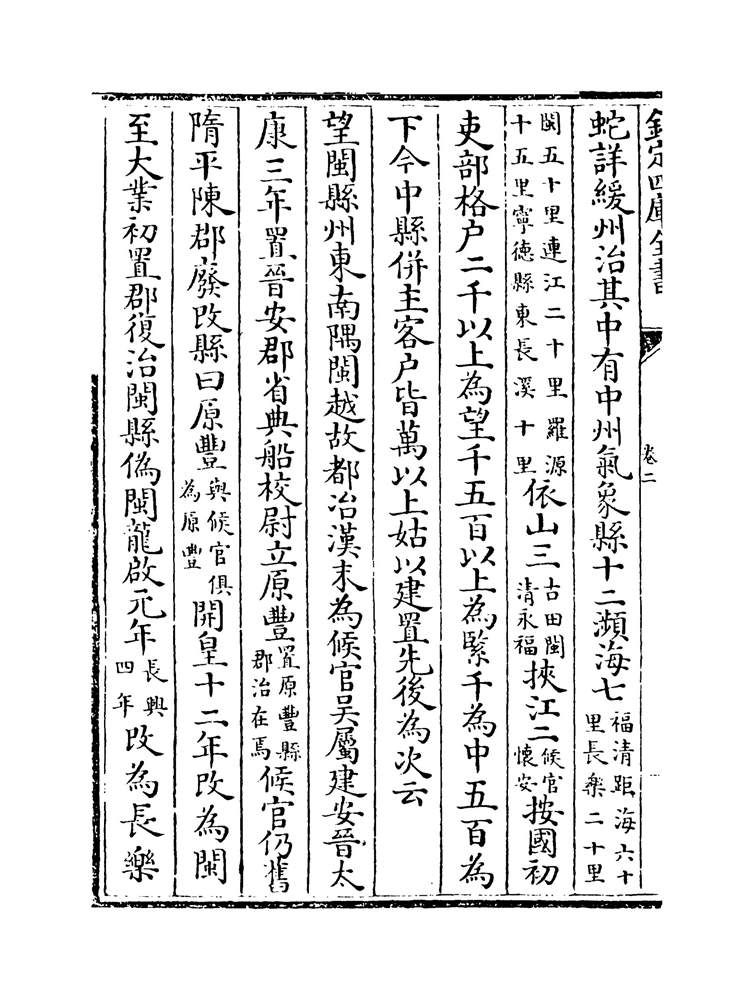 欽定四庫全書
卷二
蛇詳緩州治其中有中州氣象縣十二瀕海七福清距海六十里長樂二十里
閩五十里連江二十里羅源十五里寧徳縣東長溪十里依山三古田閩清永福挾江二候官懷安按國初
吏部格户二千以上為望千五百以上為緊千為中五百為
下今中縣併主客户皆萬以上姑以建置先後為次云
望閩縣州東南隅閩越故都冶漢末為候官吳屬建安晉太
康三年置晉安郡省典船校尉立原豐置原豐縣郡治在焉候官仍舊
隋平陳郡廢改縣曰原豐與候官俱為原豐開皇十二年改為閩
至大業初置郡復治閩縣偽閩龍啟元年長興四年改為長樂